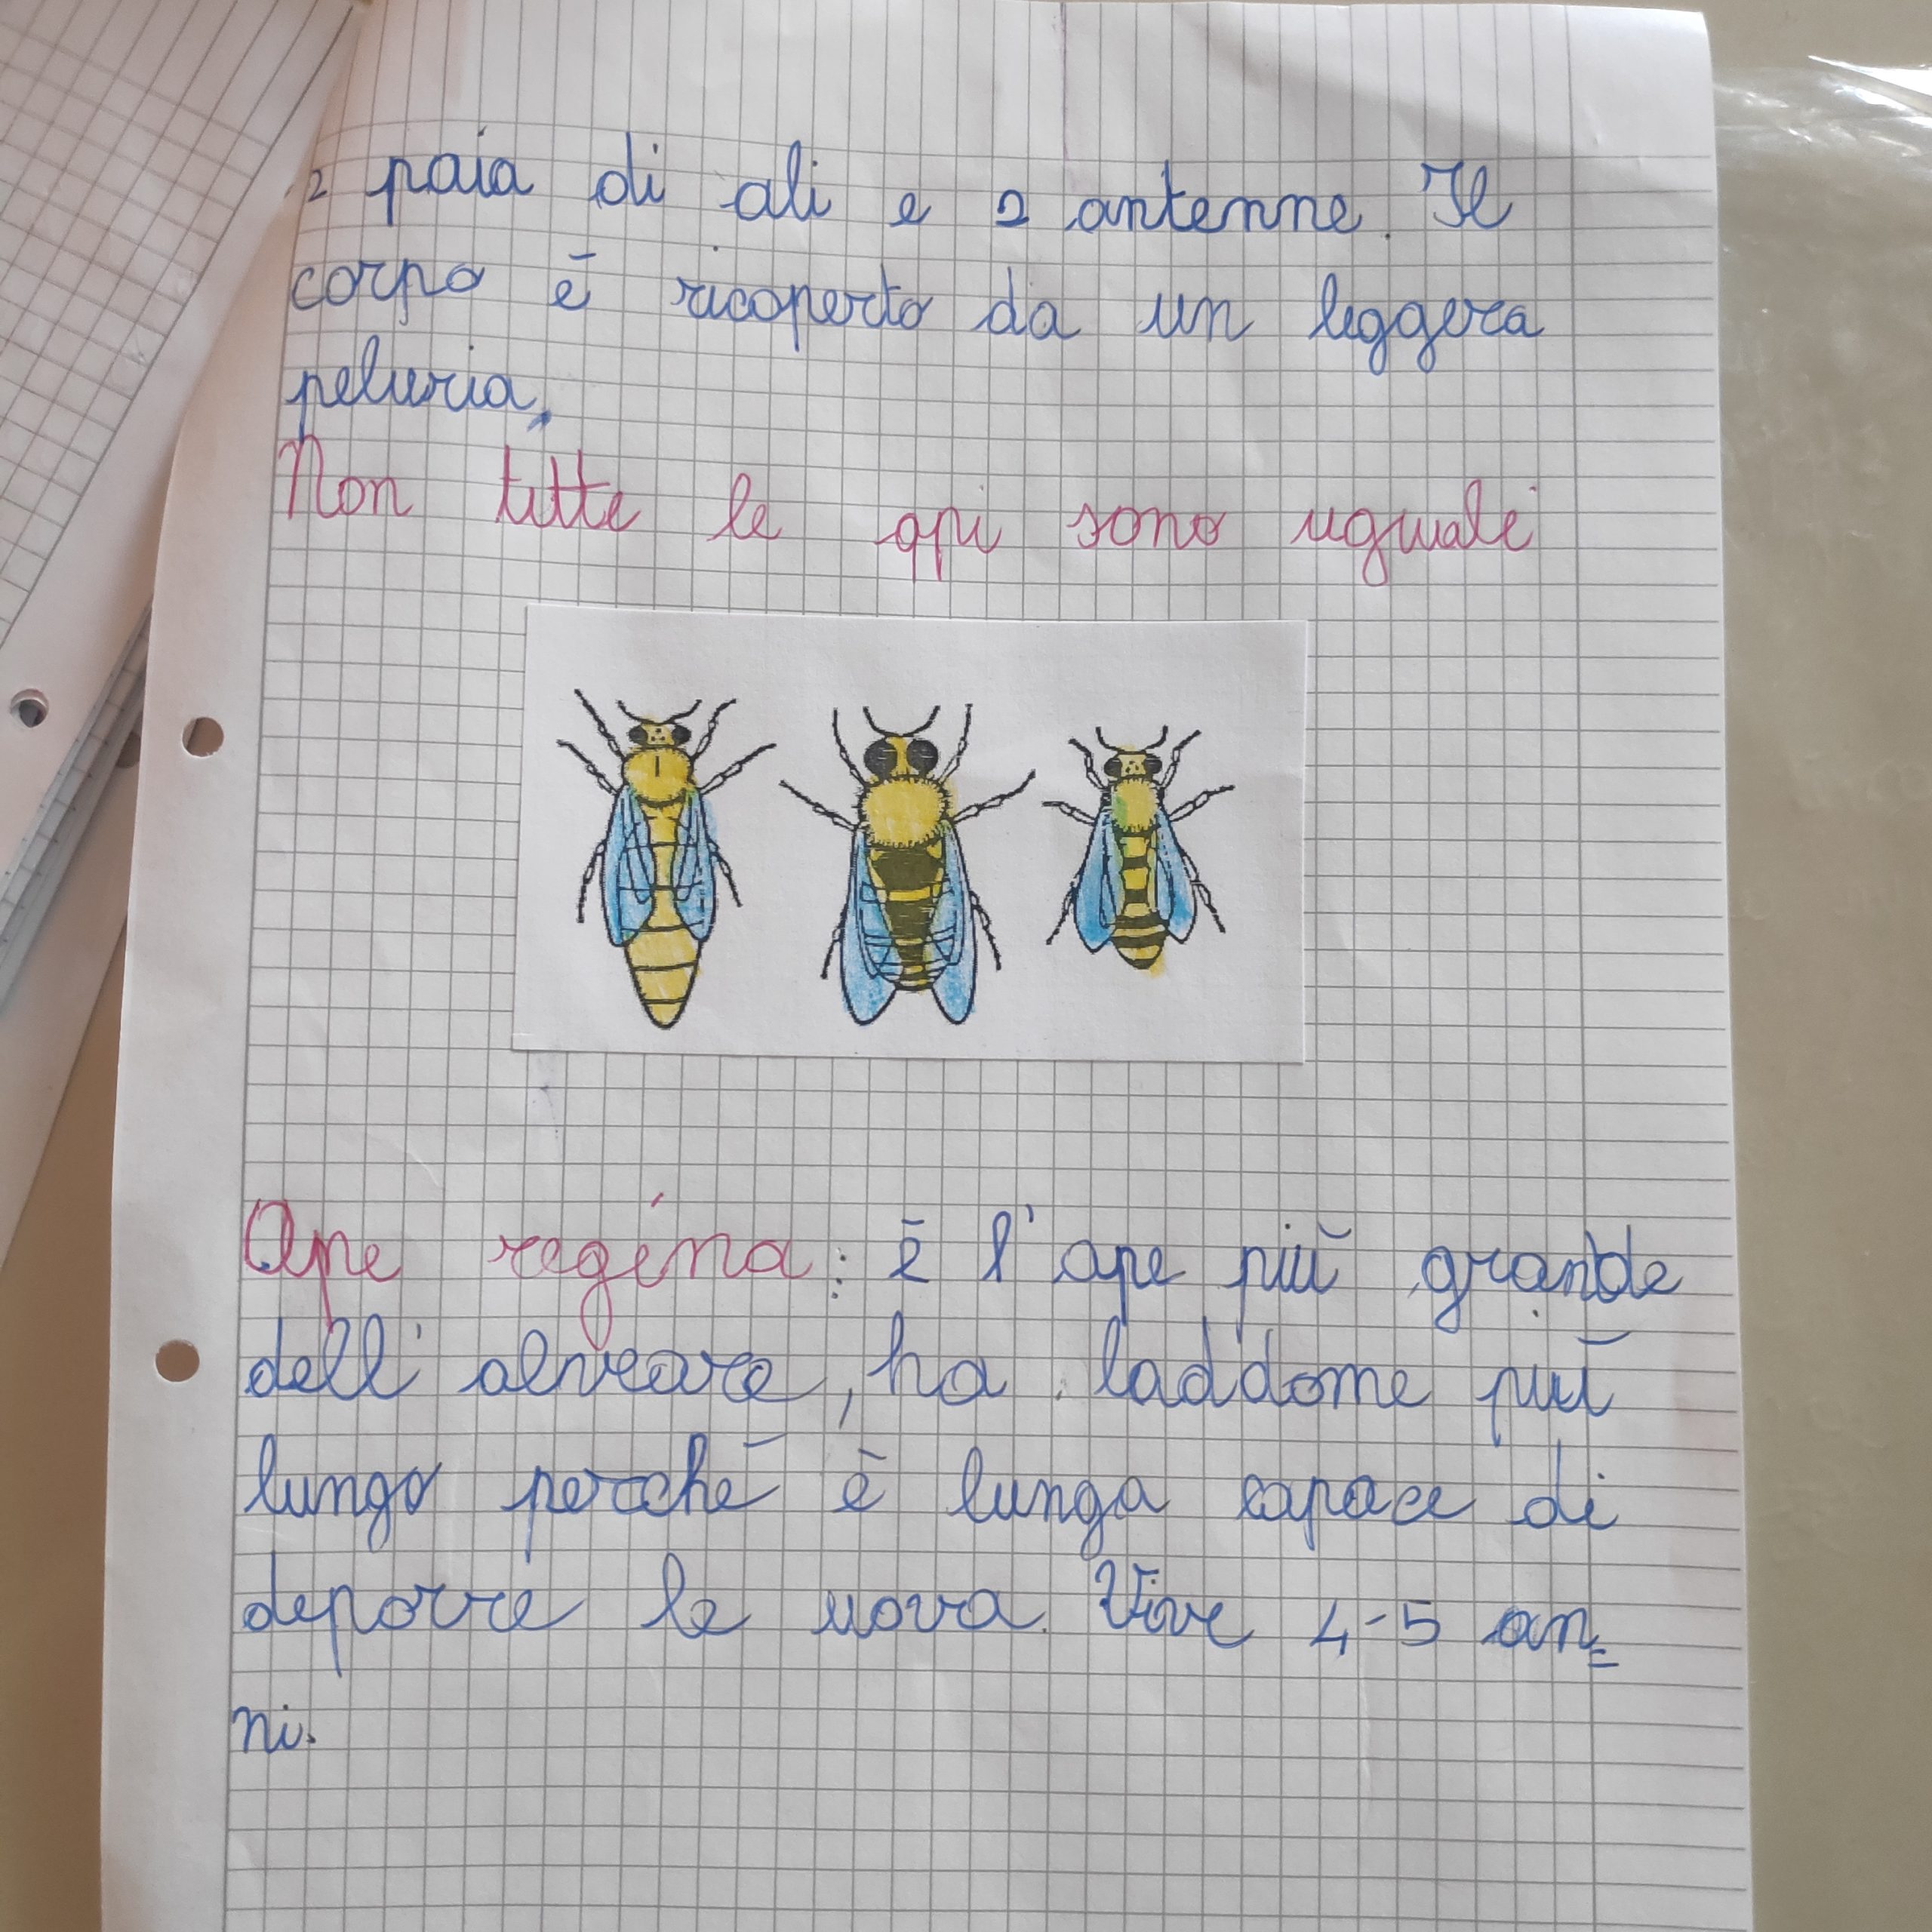 2 paia di ali e 2 antenne. Il
corpo è ricoperto da un leggera
peluria.
Non titte le api sono uguali
Ape regina: è l'ape più grande
dell'alveare, ha laddome più
lungo perché è lunga capace di
deporre le uova. Vive 4-5 an=
ni.